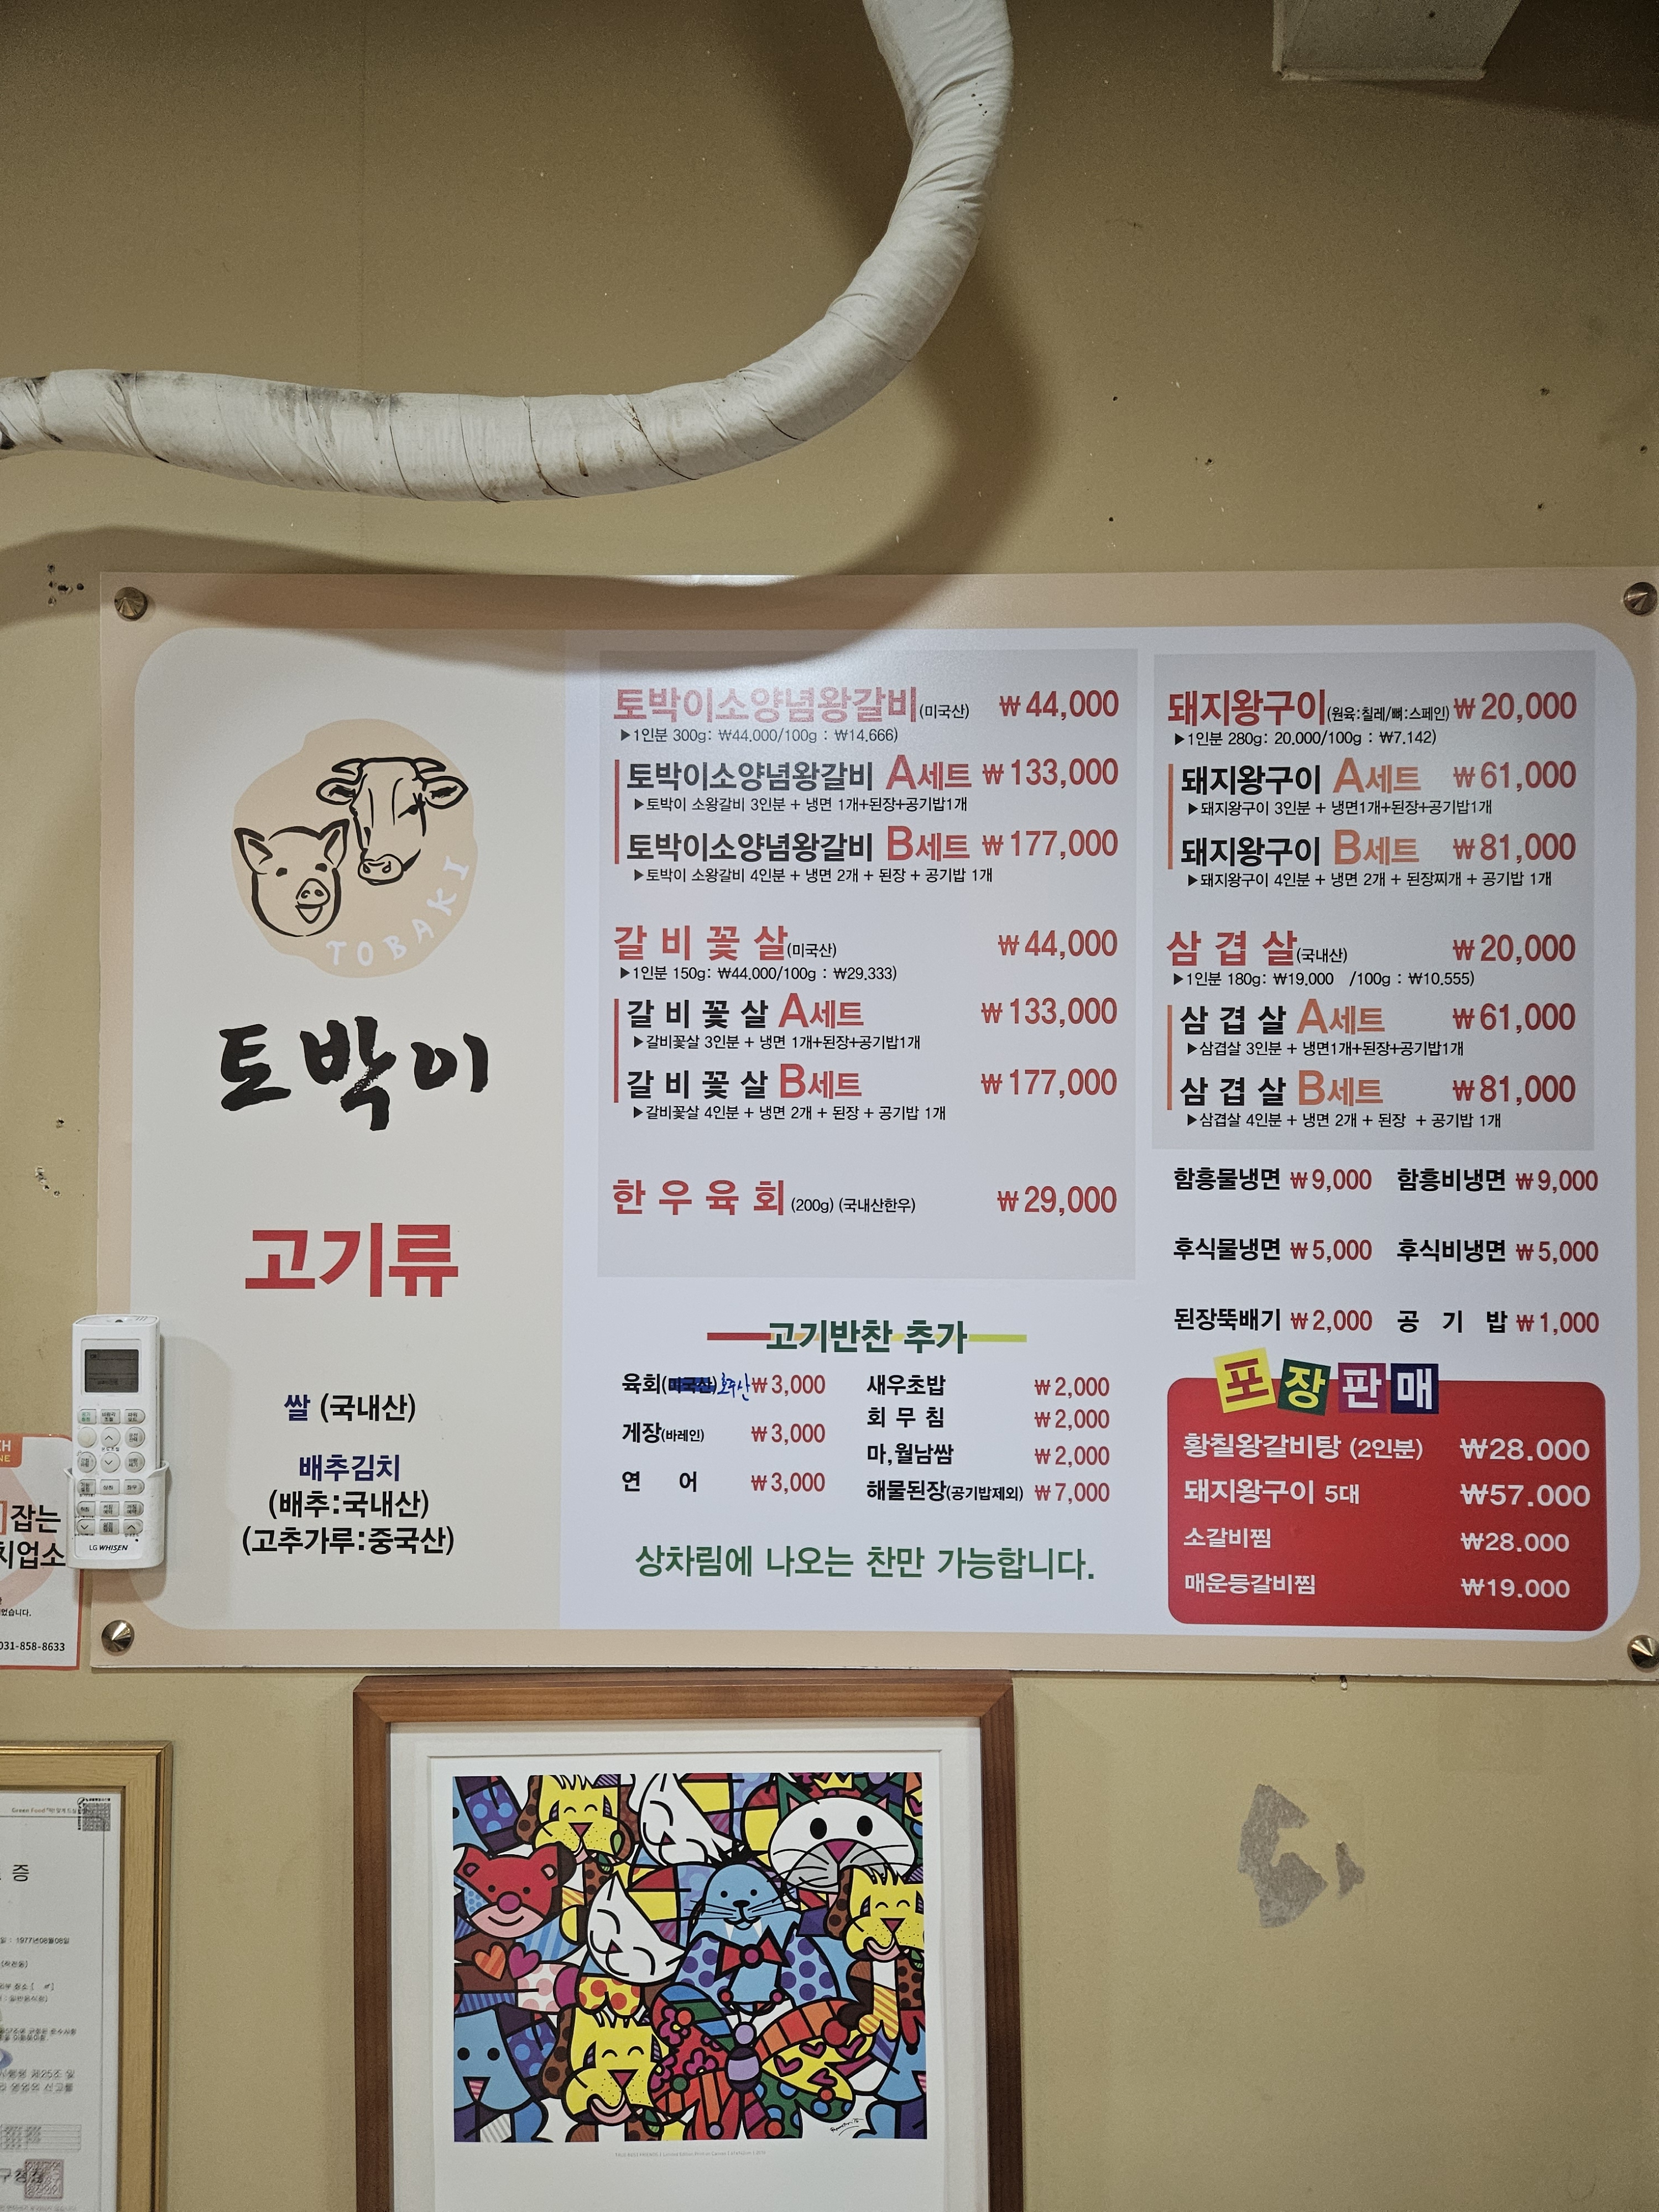 TOBAKI
토박이
고기류
쌀 (국내산)
배추김치
(배추:국내산)
(고추가루:중국산)
토박이소양념왕갈비(미국산) ₩44,000
▶1인분 300g: ₩44.000/100g : ₩14.666)
토박이소양념왕갈비 A세트 ₩133,000
▶토박이 소왕갈비 3인분 + 냉면 1개+된장+공기밥1개
토박이소양념왕갈비 B세트 ₩177,000
▶토박이 소왕갈비 4인분 + 냉면 2개 + 된장 + 공기밥 1개
갈 비 꽃 살(미국산) ₩44,000
▶1인분 150g: ₩44.000/100g : ₩29.333)
갈 비 꽃 살 A세트 ₩133,000
▶갈비꽃살 3인분 + 냉면 1개+된장+공기밥1개
갈 비 꽃 살 B세트 ₩177,000
▶갈비꽃살 4인분 + 냉면 2개 + 된장 + 공기밥 1개
한 우 육 회 (200g) (국내산한우) ₩29,000
고기반찬 추가
육회(미국산)호주산 ₩3,000
게장(바레인) ₩3,000
연 어 ₩3,000
새우초밥 ₩2,000
회 무 침 ₩2,000
마,월남쌈 ₩2,000
해물된장(공기밥제외) ₩7,000
상차림에 나오는 찬만 가능합니다.
돼지왕구이(원육:칠레/뼈:스페인) ₩20,000
▶1인분 280g: 20.000/100g : ₩7.142)
돼지왕구이 A세트 ₩61,000
▶돼지왕구이 3인분 + 냉면1개+된장+공기밥1개
돼지왕구이 B세트 ₩81,000
▶돼지왕구이 4인분 + 냉면 2개 + 된장찌개 + 공기밥 1개
삼 겹 살(국내산) ₩20,000
▶1인분 180g: ₩19.000 /100g : ₩10.555)
삼 겹 살 A세트 ₩61,000
▶삼겹살 3인분 + 냉면1개+된장+공기밥1개
삼 겹 살 B세트 ₩81,000
▶삼겹살 4인분 + 냉면 2개 + 된장 + 공기밥 1개
함흥물냉면 ₩9,000 함흥비냉면 ₩9,000
후식물냉면 ₩5,000 후식비냉면 ₩5,000
된장뚝배기 ₩2,000 공 기 밥 ₩1,000
포장판매
황칠왕갈비탕 (2인분) ₩28.000
돼지왕구이 5대 ₩57.000
소갈비찜 ₩28.000
매운등갈비찜 ₩19.000
LG WHISEN
잡는
치업소
었습니다.
031-858-8633
증
1977년08월08일